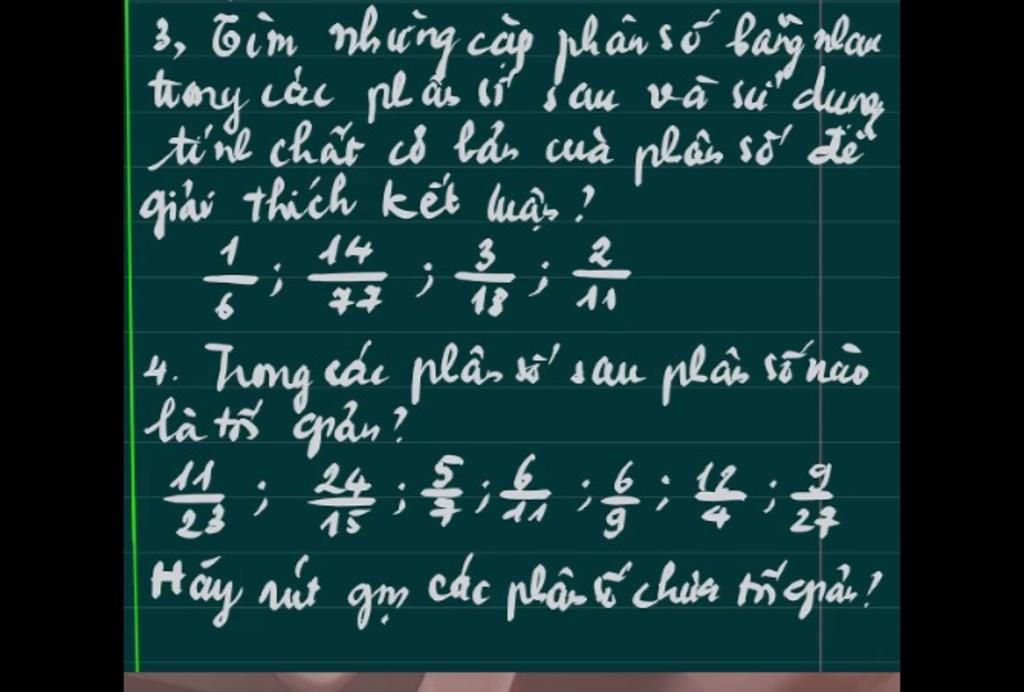 3, Tìm những cặp phân số bằng nhau
trong các phân số sau và sử dụng
tính chất cơ bản của phân số để
giải thích kết luận?
1/6 ; 14/77 ; 3/18 ; 2/11
4. Trong các phân số sau phân số nào
là tối giản?
11/23 ; 24/15 ; 5/7 ; 6/11 ; 6/9 ; 12/4 ; 9/27
Hãy rút gọn các phân số chưa tối giản?